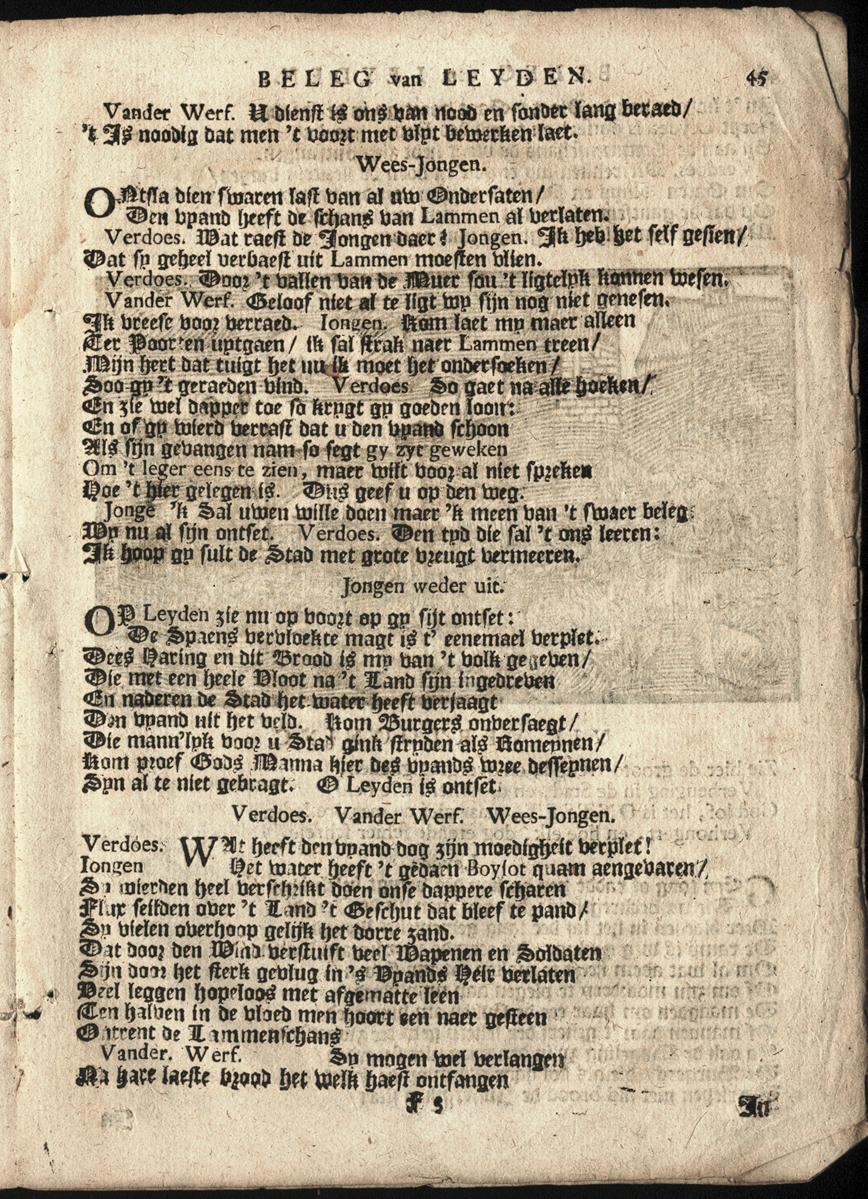 BELEG van LEYDEN. 45
Vander Werf. U dienst is ons van nood en sonder lang beraed/
't Is noodig dat men 't voort met vlyt bewerken laet.
Wees-Jongen.
ONtsla dien swaren last van al uw Ondersaten/
Den vyand heeft de schans van Lammen al verlaten.
Verdoes. Wat raest de Jongen daer? Jongen. Ik heb het self gesien/
Dat sy geheel verbaest uit Lammen moesten vlien.
Verdoes. Door 't vallen van de Muer sou 't ligtelyk konnen wesen.
Vander Werf. Geloof niet al te ligt wy sijn nog niet genesen.
Ik vreese voor verraed. Iongen. Kom laet my maer alleen
Ter Poorten uytgaen/ ik sal strak naer Lammen treen/
Mijn hert dat tuigt het nu ik moet het ondersoeken/
Soo gy 't geraeden vind. Verdoes So gaet na alle hoeken/
En zie wel dapper toe so krygt gy goeden loon:
En of gy wierd verrast dat u den vyand schoon
Als sijn gevangen nam so segt gy zyt geweken
Om 't leger eens te zien, maer wilt voor al niet spreken
Hoe 't hier gelegen is. Dus geef u op den weg.
Jonge 'k Sal uwen wille doen maer 'k meen van 't swaer beleg
Wy nu al sijn ontset. Verdoes. Den tyd die sal 't ons leeren:
Ik hoop gy sult de Stad met grote vreugt vermeeren.
Jongen weder uit.
OP Leyden zie nu op voort op gy sijt ontset:
De Spaens vervloekte magt is t' eenemael verplet.
Dees Haring en dit Brood is my van 't volk gegeven/
Die met een heele Vloot na 't Land sijn ingedreven
En naderen de Stad het water heeft verjaagt
Den vyand uit het veld. Kom Burgers onversaegt/
Die mann'lyk voor u Stad gink stryden als Romeynen/
Kom proef Gods Manna hier des vyands wree desseynen/
Syn al te niet gebragt. O Leyden is ontset
Verdoes. Vander Werf. Wees-Jongen.
Verdoes. WAt heeft den vyand dog zijn moedigheit verplet!
Iongen Het water heeft 't gedaen Boysot quam aengevaren/
Sy wierden heel verschrikt doen onse dappere scharen
Flux seilden over 't Land 't Geschut dat bleef te pand/
Sy vielen overhoop gelijk het dorre zand.
Dat door den Wind verstuift veel Wapenen en Soldaten
Sijn door het sterk gevlug in 's Vyands Heir verlaten
Veel leggen hopeloos met afgematte leen
Ten halven in de vloed men hoort een naer gesteen
Ontrent de Lammenschans
Vander. Werf. Sy mogen wel verlangen
Na hare laeste brood het welk haest ontfangen
F 5 In